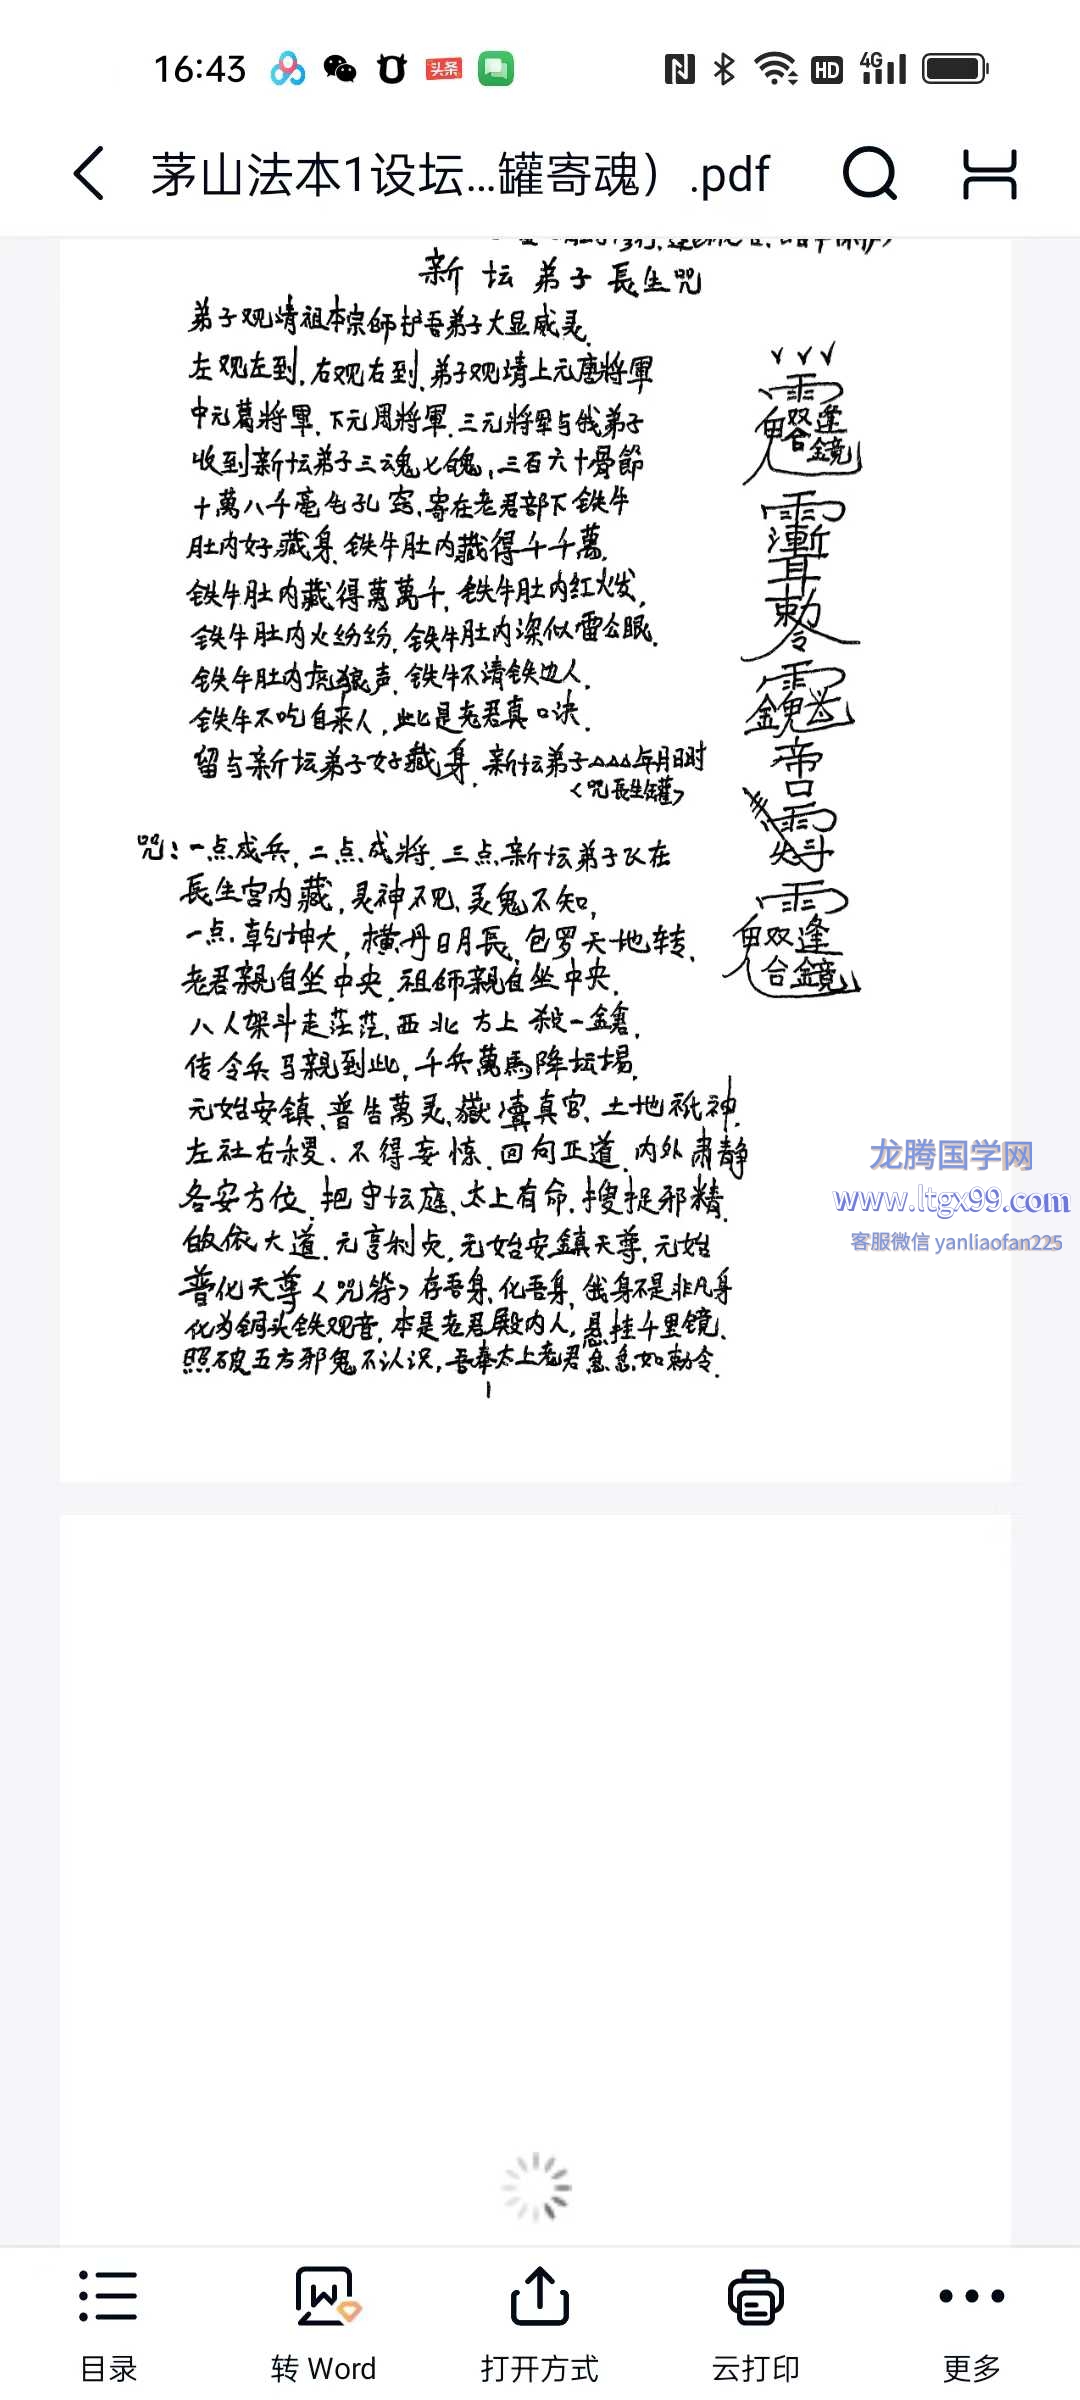 16:43
头条
HD 4G
茅山法本1设坛...罐寄魂）.pdf
新坛弟子長生咒
弟子观请祖本宗師护吾弟子大显威灵.
左观左到.右观右到.弟子观请上元唐將軍
中元葛將軍.下元周將軍.三元將軍与我弟子
收到新坛弟子三魂七魄,三百六十骨節
十萬八千毫毛孔窍、寄在老君部下铁牛
肚内好藏身.铁牛肚内藏得千千萬.
铁牛肚内藏得萬萬千,铁牛肚内红火发,
铁牛肚内火纷纷,铁牛肚内深似雷公眠.
铁牛肚内虎狼声.铁牛不请铁边人.
铁牛不吃自来人,此是老君真口决.
留与新坛弟子好藏身.新坛弟子△△△年月日时
<咒長生罐>
咒:一点成兵,二点成將.三点新坛弟子飞在
長生宫内藏,灵神不见、灵鬼不知,
一点.乾坤大,横丹日月長,包罗天地转.
老君親自坐中央.祖师親自坐中央.
八人架斗走茫茫,西北方上殺一鎗,
传令兵马親到此,千兵萬馬降坛場.
元始安镇、普告萬灵、嶽瀆真官、土地祇神.
左社右稷、不得妄惊.回向正道.内外肃静
各安方位.把守坛庭、太上有命.搜捉邪精.
皈依大道.元亨利贞.元始安鎮天尊,元始
普化天尊<咒符>存吾身、化吾身,我身不是非凡身
化为铜头铁观音,本是老君殿内人,悬挂千里镜、
照破五方邪鬼不认识,吾奉太上老君急急如勅令.
1
双逢
合鏡
漸
耳
勅令
帝
双逢
合鏡
龙腾国学网
www.ltgx99.com
客服微信 yanliaofan225
目录
转 Word
打开方式
云打印
更多